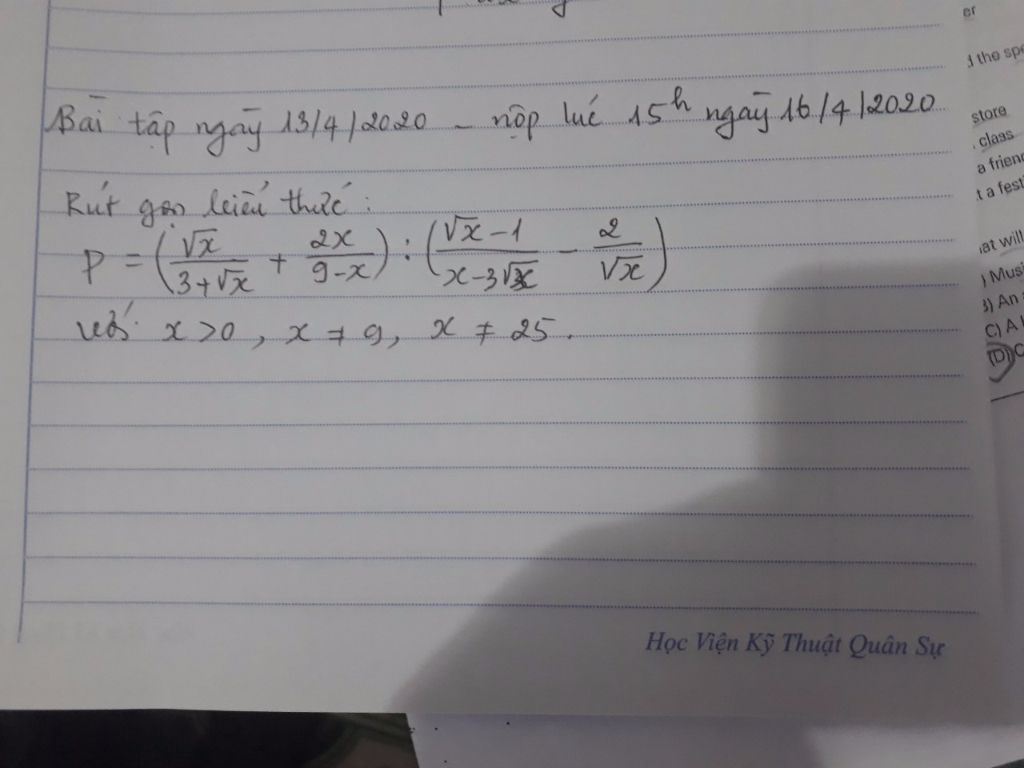 Bài tập ngày 13/4/2020 - nộp lúc 15h ngày 16/4/2020
Rút gọn biểu thức:
P = (√x/(3+√x) + 2x/(9-x)) : ((√x-1)/(x-3√x) - 2/√x)
với x>0, x≠9, x≠25.
Học Viện Kỹ Thuật Quân Sự
er
d the spe
store
class
a friend
t a fest
at will
) Musi
B) An
C) A
(D) C